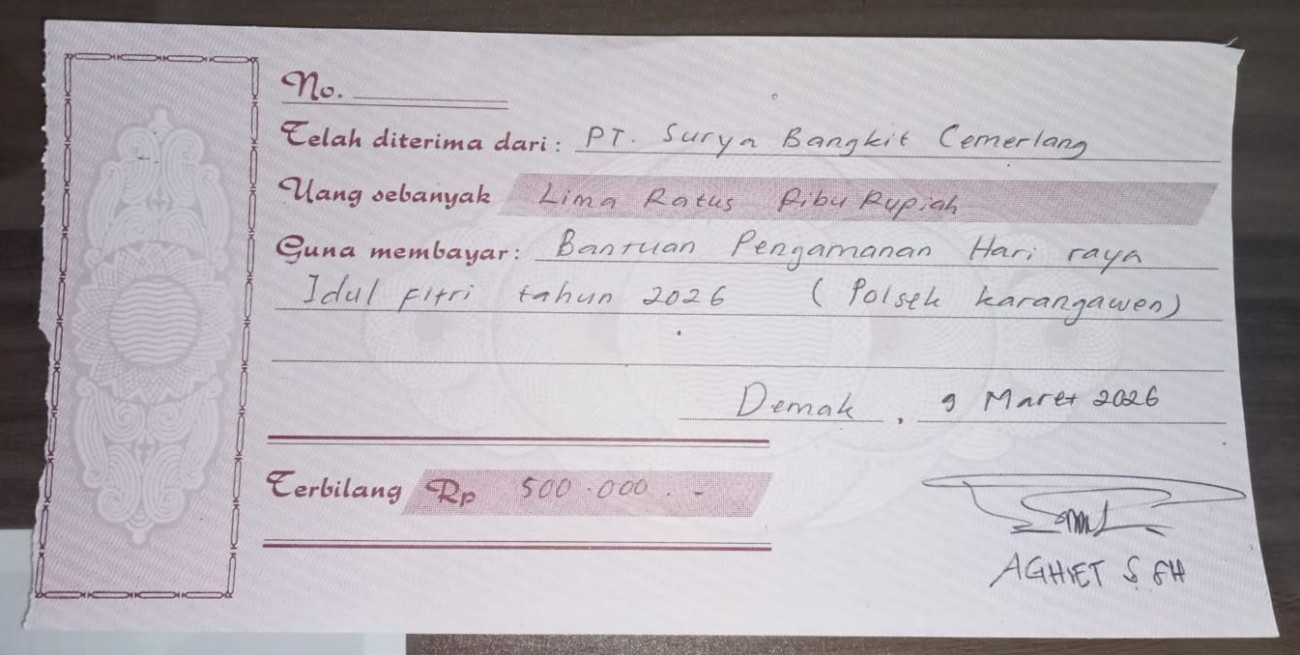 No.
Telah diterima dari: PT. Surya Bangkit Cemerlang
Uang sebanyak Lima Ratus Ribu Rupiah
Guna membayar: Bantuan Pengamanan Hari raya
Idul Fitri tahun 2026 (Polsek karangawen)
Demak, 9 Maret 2026
Terbilang Rp 500.000.-
AGHIET S SH